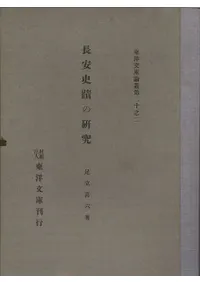 東洋文庫論叢第二十之
長安史蹟の研究
足立喜六著
財團法人 東洋文庫刊行